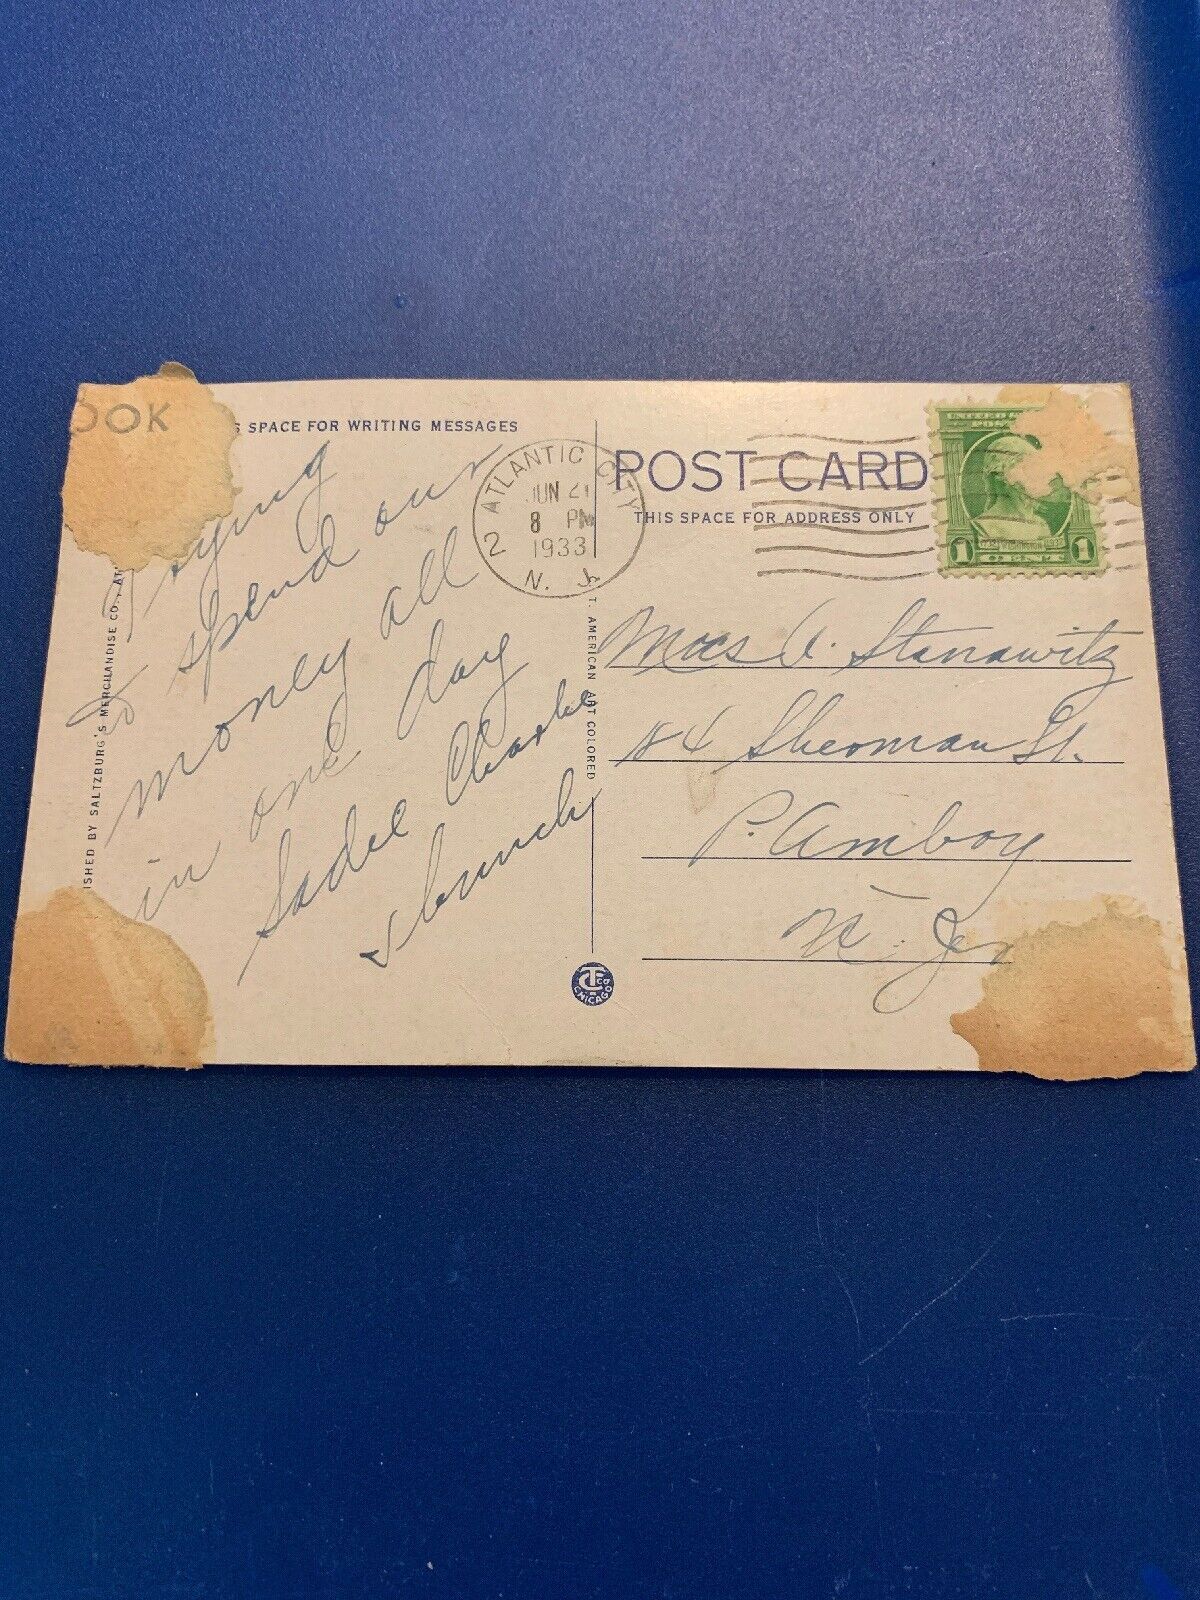 OOK
S SPACE FOR WRITING MESSAGES
Trying
to spend our
money all
in one day
Sadie Charlie
& bunch
ISHED BY SALTZBURG'S MERCHANDISE CO., AT
ATLANTIC CITY
2
JUN 21
8 PM
1933
N. J.
POST CARD
THIS SPACE FOR ADDRESS ONLY
1 CENTS 1
C. T. AMERICAN ART COLORED
Mrs A. Stanawitz
184 Sherman St.
P. Amboy
N. Jer
CT CO
CHICAGO